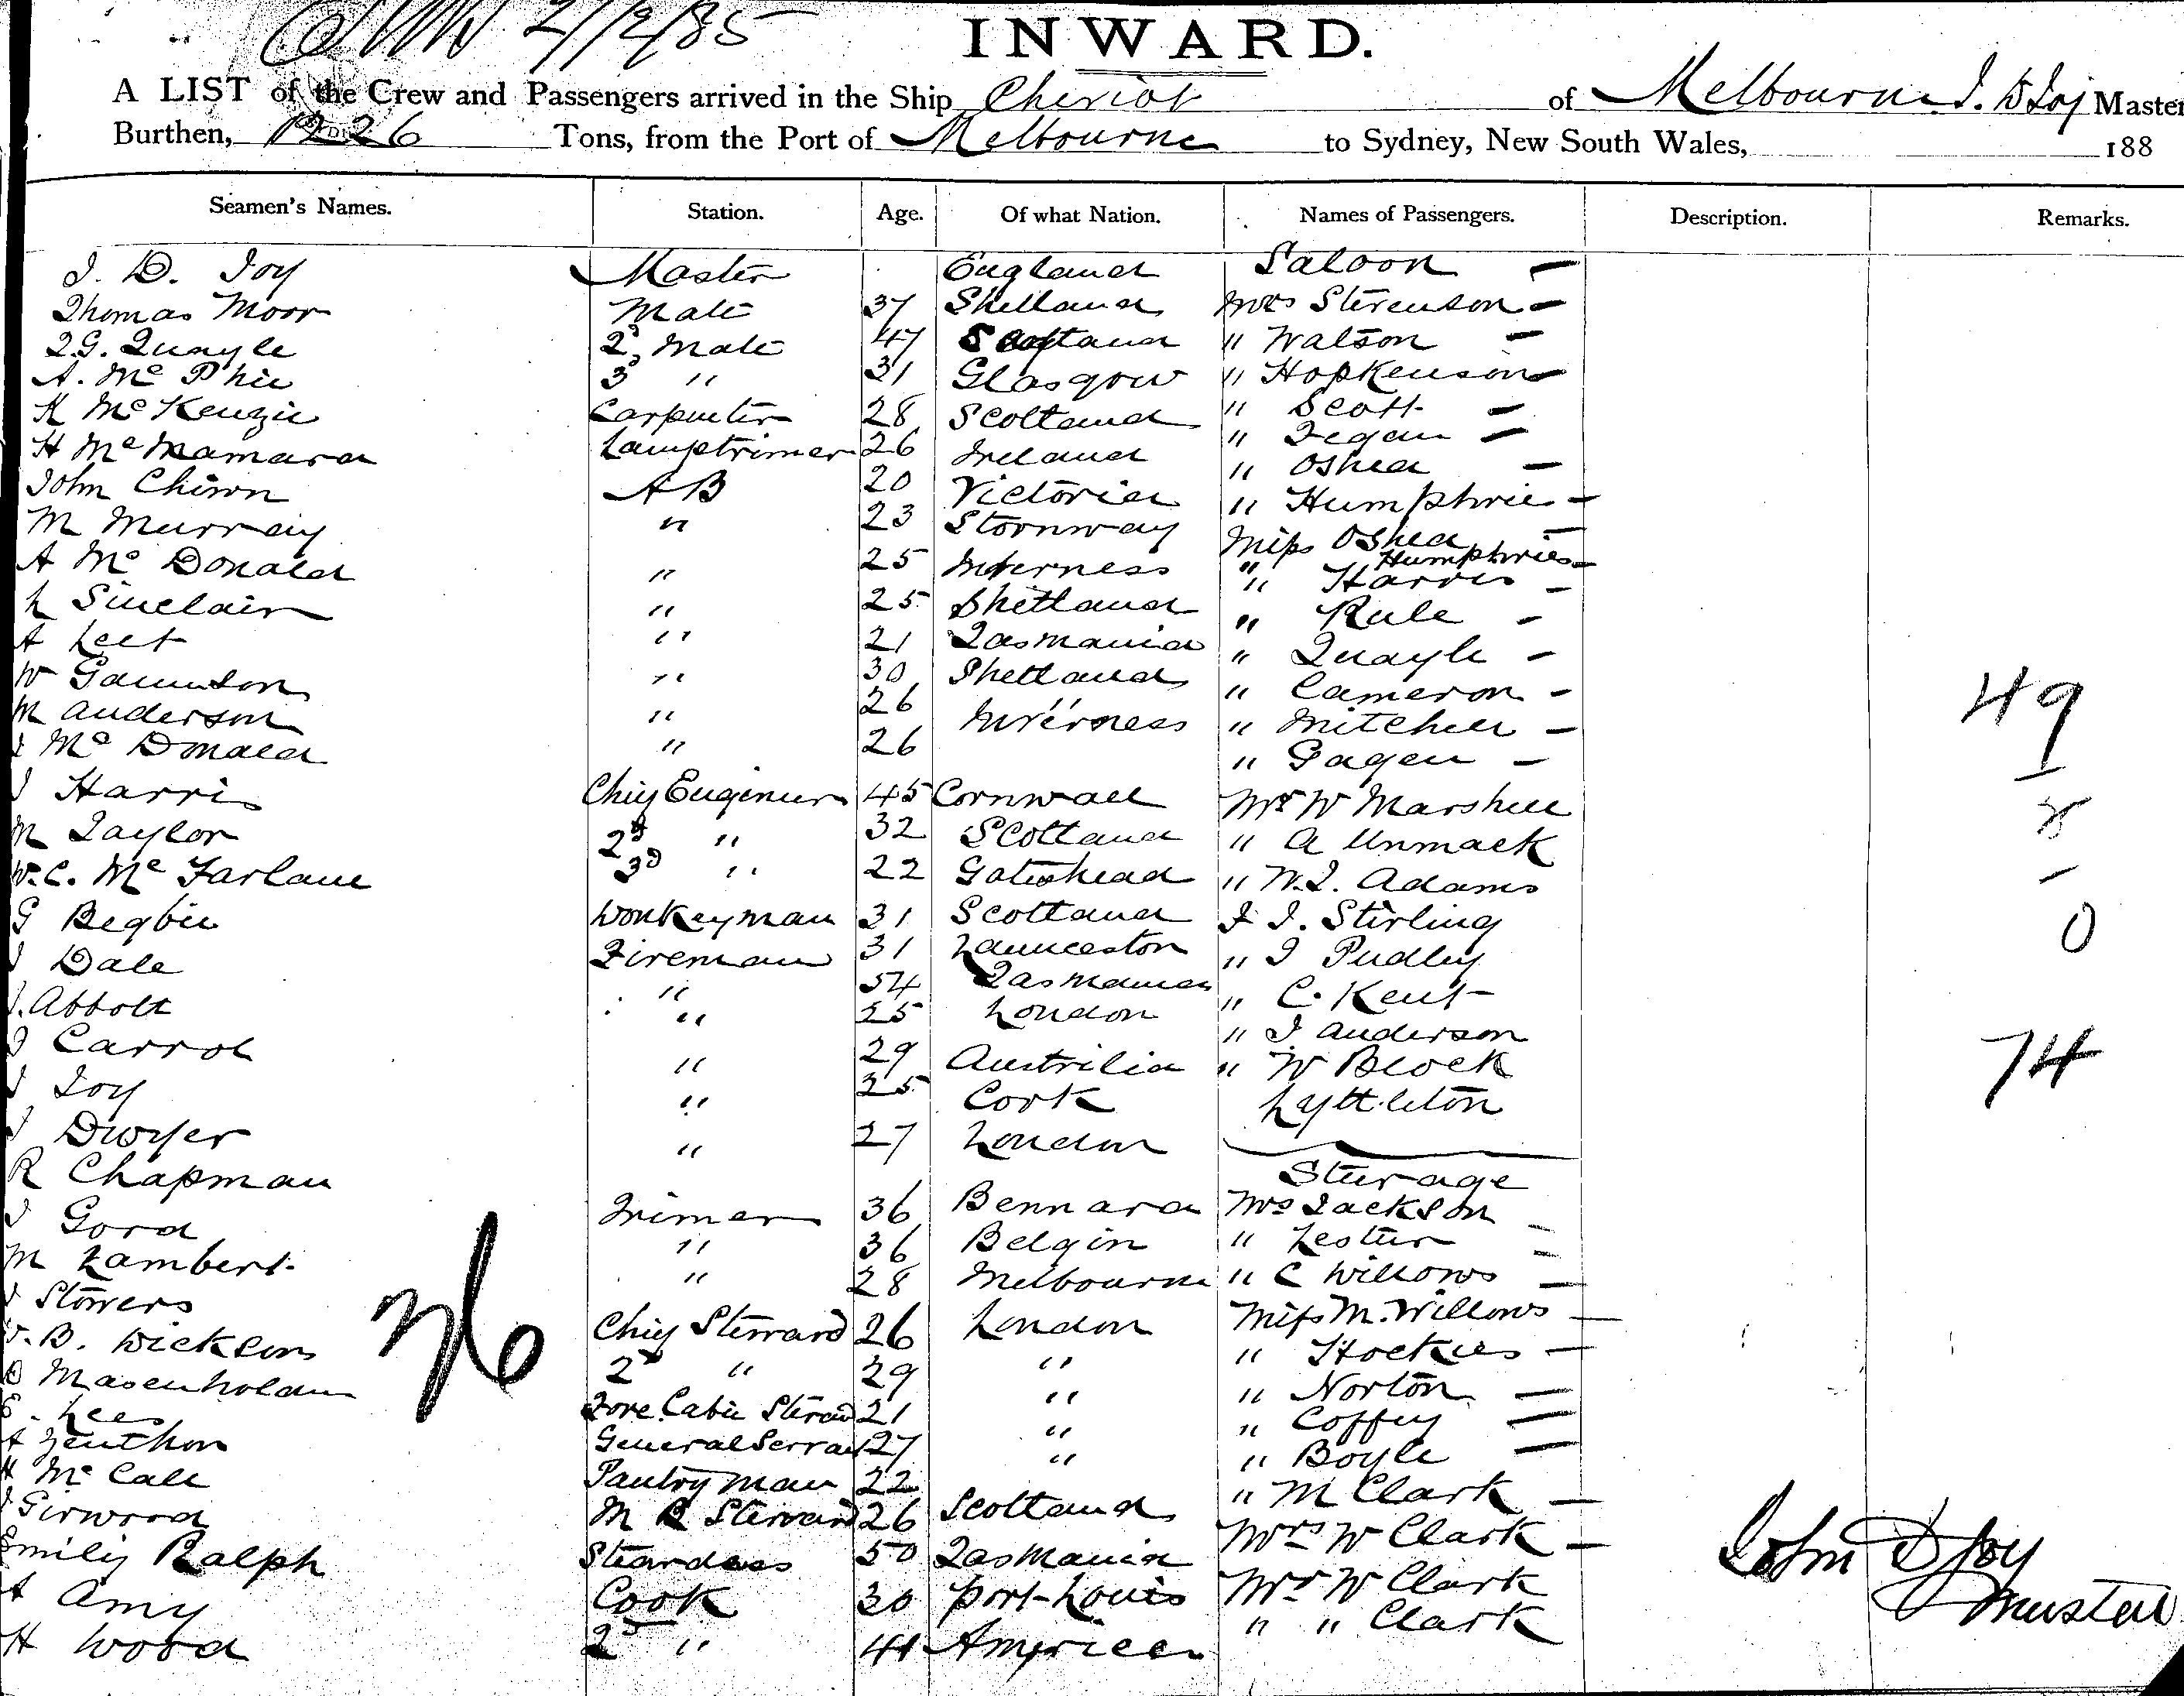 2/12/85
INWARD.
A LIST of the Crew and Passengers arrived in the Ship Cheviot of Melbourne J. D Joy Master
Burthen, 1226 Tons, from the Port of Melbourne to Sydney, New South Wales, 188
Seamen's Names. Station. Age. Of what Nation. Names of Passengers. Description. Remarks.
J. D. Joy Master England Saloon
Thomas Moor Mate 37 Shetland Mrs Stevenson
T.G. Quayle 2d Mate 47 Scotland " Watson
A. Mc Phie 3d " 31 Glasgow " Hopkenson
K McKenzie Carpenter 28 Scotland " Scott
H McNamara Lamptrimer 26 Ireland " Fegan
John Chiswn AB 20 Victoria " Oshea
M Murray " 23 Stornway " Humphrie
A Mc Donald " 25 Inverness Miss Oshea
" Humphries
L Sinclair " 25 Shetland " Harris
A Leet " 21 Tasmania " Rule
W " 30 Shetland " Quayle
M Anderson " 26 " " Cameron
J Mc Donald " 26 Inverness " Mitchell
" Gagen
49
J Harris Chief Enginer 45 Cornwall Mr W Marshell
M Taylor 2d " 32 Scotland " A Unmack
W.C. McFarlane 3d " 22 Gateshead " W.J. Adams
G Begbie Donkeyman 31 Scotland J J. Stirling
0
J Dale Fireman 31 Launceston " J Pudley
J. Abbott " 54 Tasmania " C. Kent
J Carrol " 25 London " J Anderson
J Joy " 29 Austrilia " W Block
74
J Dwyer " 25 Cork Lyttleton
R Chapman " 27 London
Sturage
J Gord Trimer 36 Bennara Mrs Jackson
M Lambert " 36 Belgin " Lester
J Stowers " 28 Melbourne " C Willows
36
J. B. Dickson Chief Steward 26 London Miss M. Willows
Masenholdm 2d " 29 " " Hockies
E. Lees Fore Cabin Steward 21 " " Norton
A General Servant 27 " " Coffey
H Mc Call Pantry man 22 " " Boyle
J Girwood M R Steward 26 Scotland " M Clark
Emily Ralph Steardess 50 Tasmania Mrs W Clark
A Amy Cook 30 Port-Louis Mr W Clark
H Wood 2d " 41 America " " Clark
John D Joy
Master